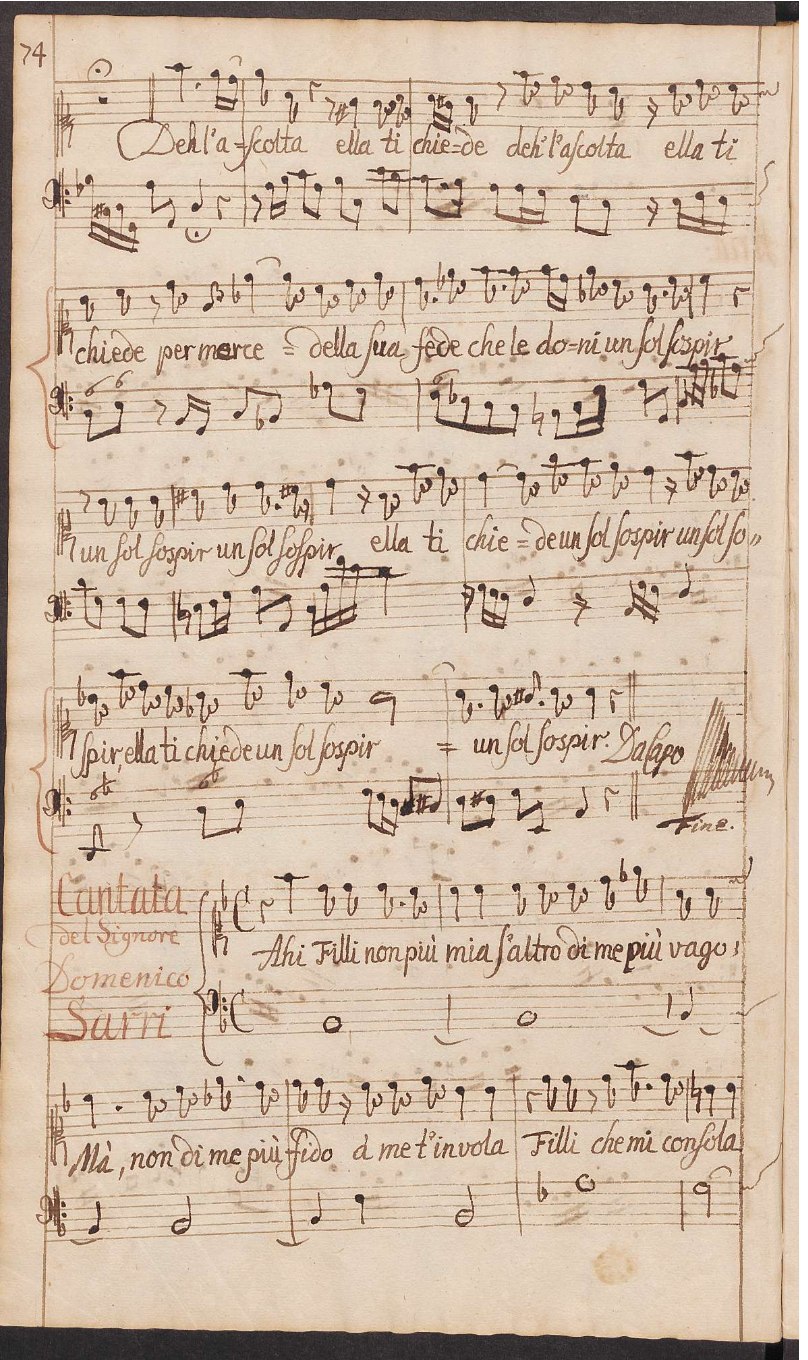 74
Deh l'a=scolta ella ti chie=de deh' l'ascolta ella ti
chiede per merce = della sua fede che le do=ni un sol sospir
un sol sospir un sol sospir ella ti chie=de un sol sospir un sol so,,
spir, ella ti chiede un sol sospir = un sol sospir. Da Capo
Fine.
Cantata
del Signore
Domenico
Sarri
Ahi Filli non più mia s'altro di me più vago,
Mà, non di me più fido à me t'invola Filli che mi consola